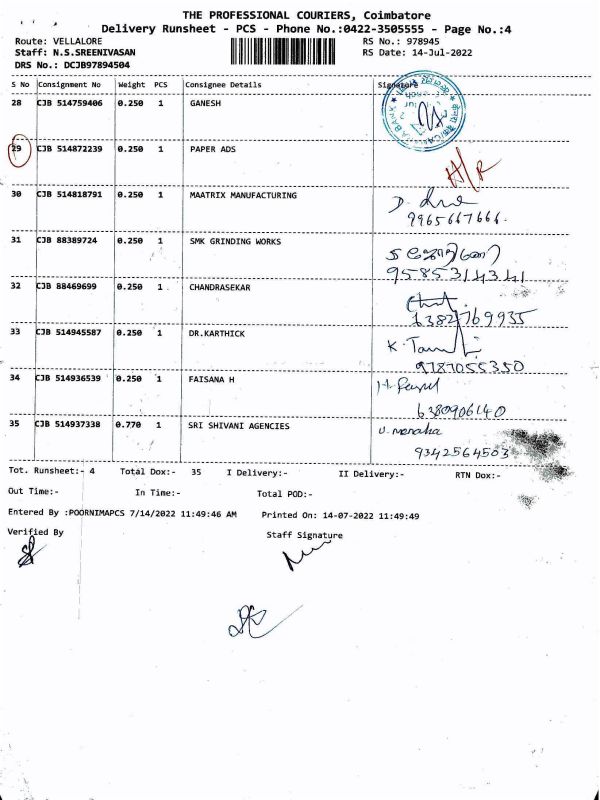 THE PROFESSIONAL COURIERS, Coimbatore
Delivery Runsheet - PCS - Phone No.:0422-3505555 - Page No.:4
Route: VELLALORE
RS No.: 978945
Staff: N.S.SREENIVASAN
RS Date: 14-Jul-2022
DRS No.: DCJB97894504
S No Consignment No Weight PCS Consignee Details Signature
28 CJB 514759406 0.250 1 GANESH
29 CJB 514872239 0.250 1 PAPER ADS
30 CJB 514818791 0.250 1 MAATRIX MANUFACTURING
9965667666.
31 CJB 88389724 0.250 1 SMK GRINDING WORKS
9585314341
32 CJB 88469699 0.250 1 CHANDRASEKAR
33 CJB 514945587 0.250 1 DR.KARTHICK
9787055350
34 CJB 514936539 0.250 1 FAISANA H
35 CJB 514937338 0.770 1 SRI SHIVANI AGENCIES
9342564503
Tot. Runsheet:- 4 Total Dox:- 35 I Delivery:- II Delivery:- RTN Dox:-
Out Time:- In Time:- Total POD:-
Entered By :POORNIMAPCS 7/14/2022 11:49:46 AM Printed On: 14-07-2022 11:49:49
Verified By
Staff Signature